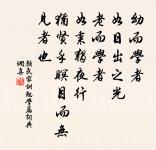 幼而學者
如日出之光
老而學者
如秉燭夜行
猶賢乎瞑目而無
見者也
顏氏家訓勉學篇詞典
網集